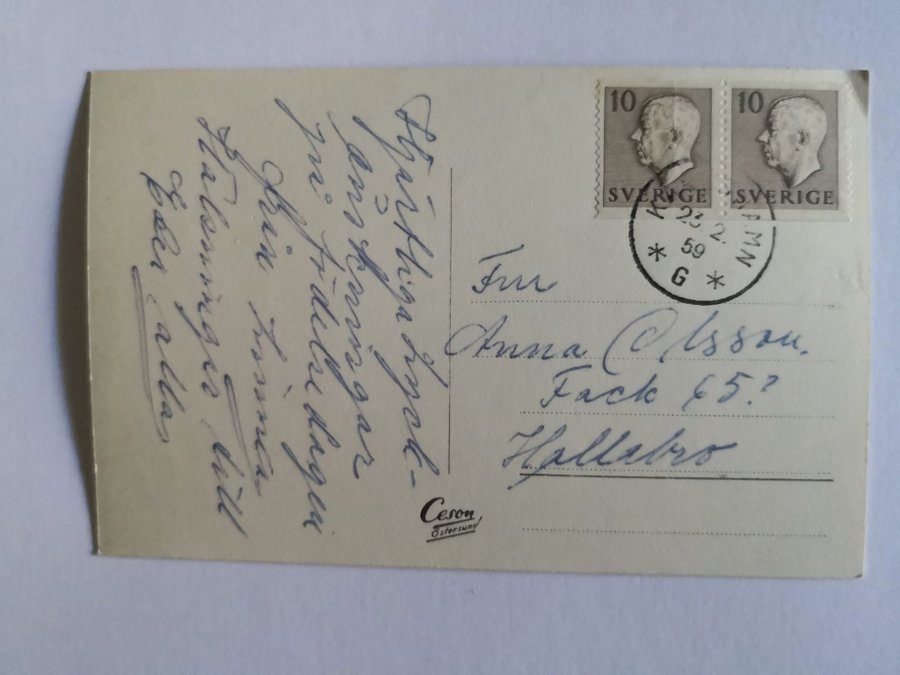 10 10
SVERIGE SVERIGE
K MN
23 2.
59
* G *
Hjärtliga lyck-
önskningar
på födelsedagen
från
Hälsningar till
Eder alla
Fru
Anna Olsson.
Fack 65?
Hallabro
Ceson
Östersund